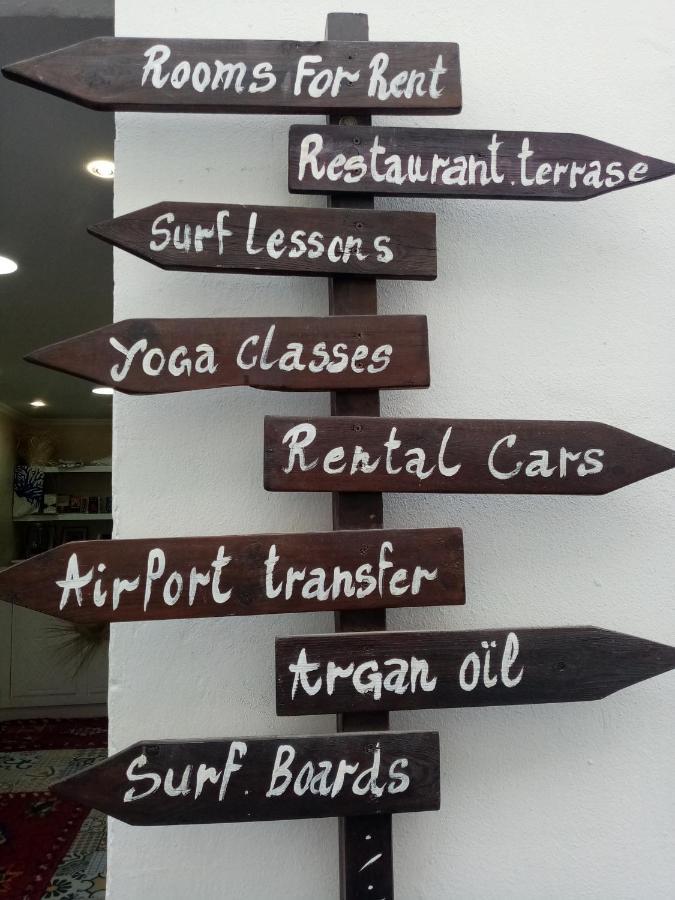 Rooms For Rent
Restaurant.terrase
Surf Lessons
Yoga Classes
Rental Cars
AirPort transfer
Argan oïl
Surf. Boards